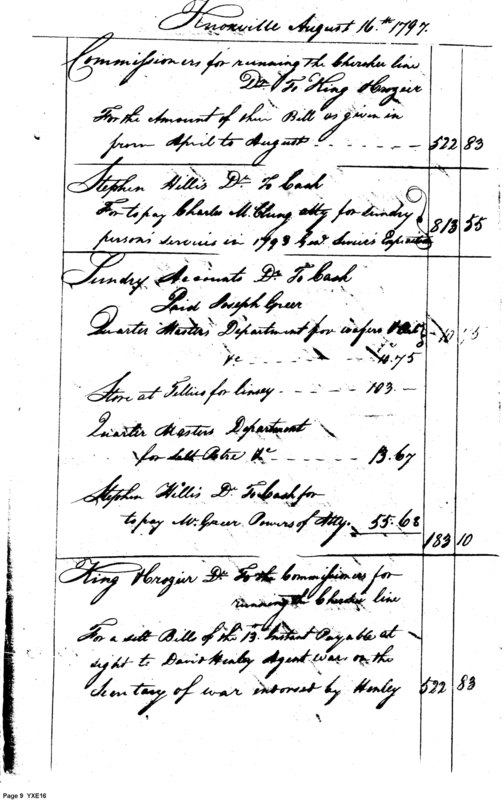 Knoxville August 16th 1797.
Commissioners for running the Cherokee line
Dr To King & Crozier
For the Amount of their Bill as given in
from April to August - - - - - - 522 83
Stephen Hillis Dr To Cash
For to pay Charles McClung atty for sundry
persons services in 1793 Genl Seviers Expedition 813 55
Sundry Accounts Dr To Cash
Paid Joseph Greer
Quarter Masters Department for wafers
&c - - - - - - 10.75
Store at Tellico for linsey - - - - 103 —
Quarter Masters Department
for salt Petre &c - - - - - - 13.67
Stephen Hillis Dr To Cash for
to pay Mr Greer Powers of Atty. 55.68
183 10
King & Crozier Dr To the Commissioners for
running the Cherokee line
For a sett Bill of the 13th Instant Payable at
sight to David Henley Agent war on the
Secretary of war endorsed by Henley 522 83
Page 9 YXE16